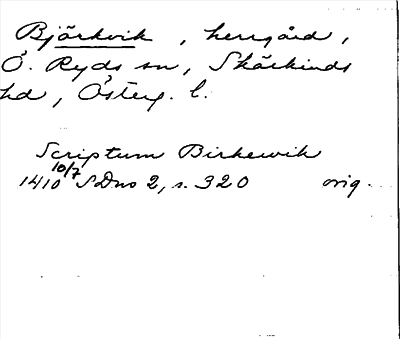 Björkvik, herrgård,
Ö. Ryds sn, Skärkinds
hd, Österg. l.
Scriptum Birkewik
1410 10/7 SDns 2, s. 320 orig.